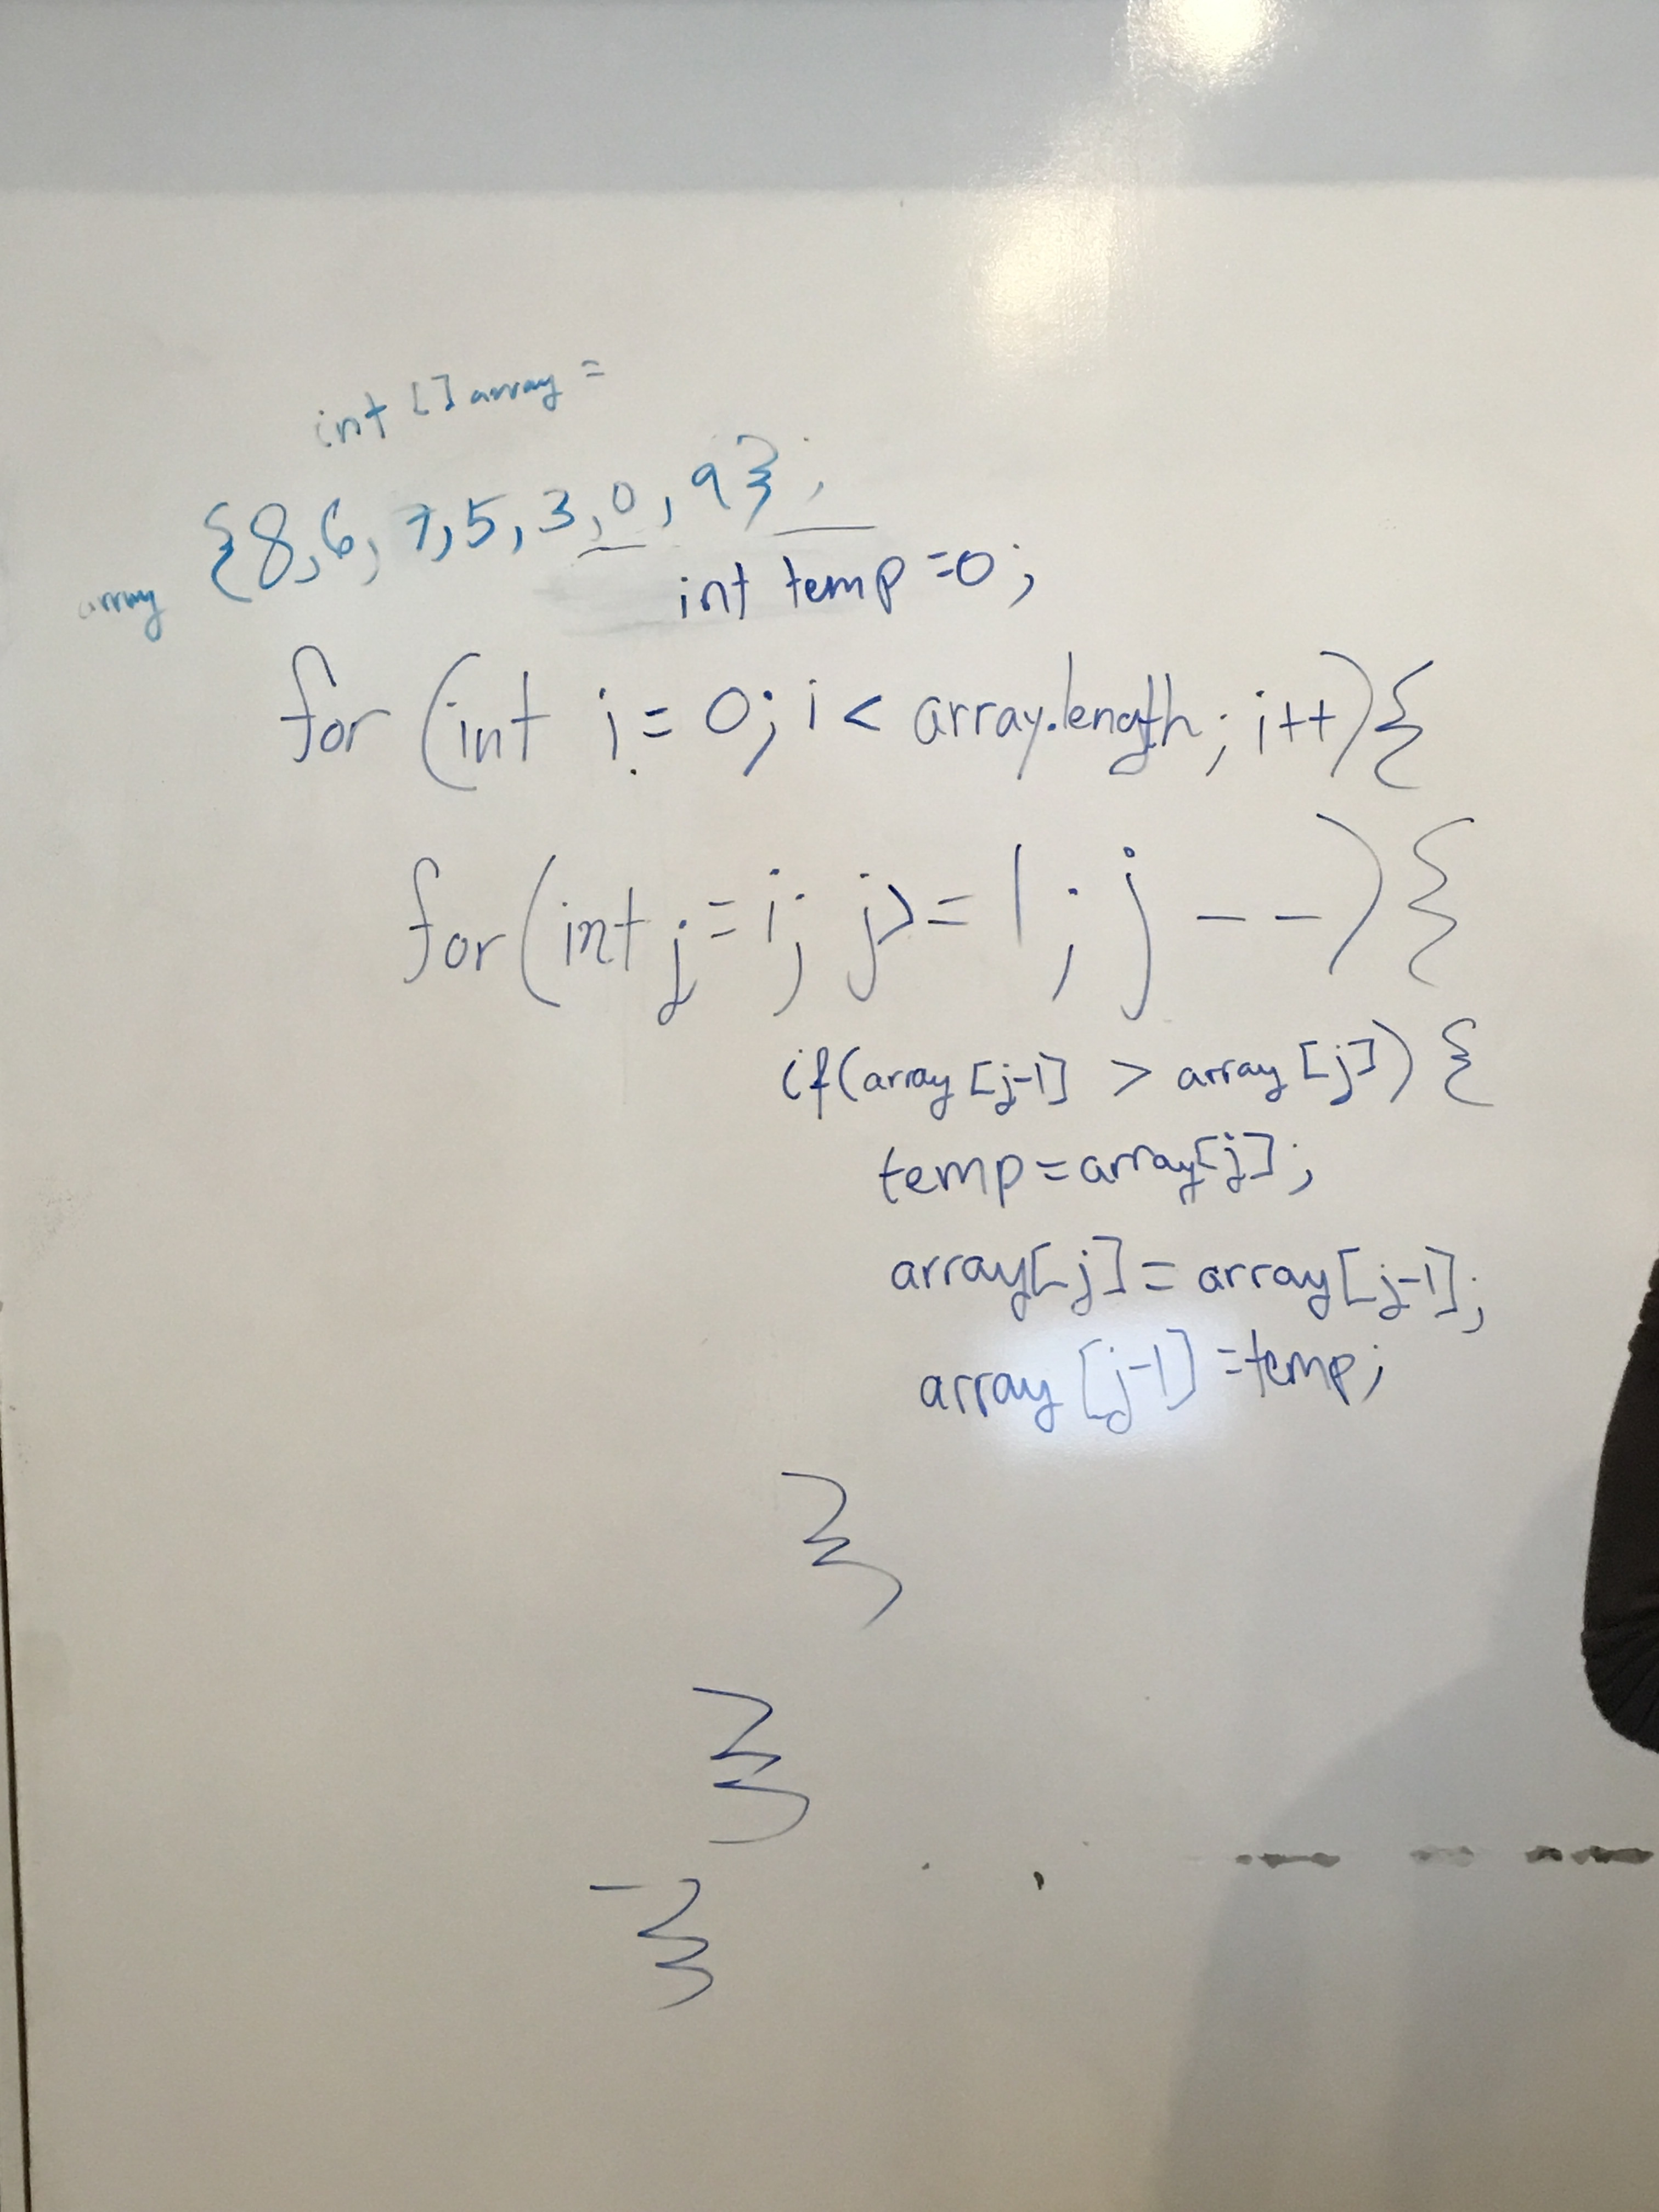 int [] array =
{8,6,7,5,3,0,9};
array
int temp =0;
for (int i = 0; i < array.length; i++){
for(int j = i; j >= 1; j --){
if(array[j-1] > array[j]) {
temp = array[j];
array[j] = array[j-1];
array[j-1] = temp;
}
}
}